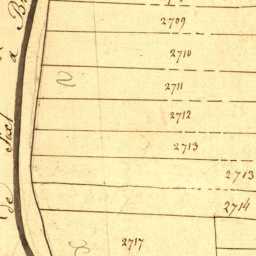 2709
2710
2711
2712
2713
2713
2714
2717
de Sael
a